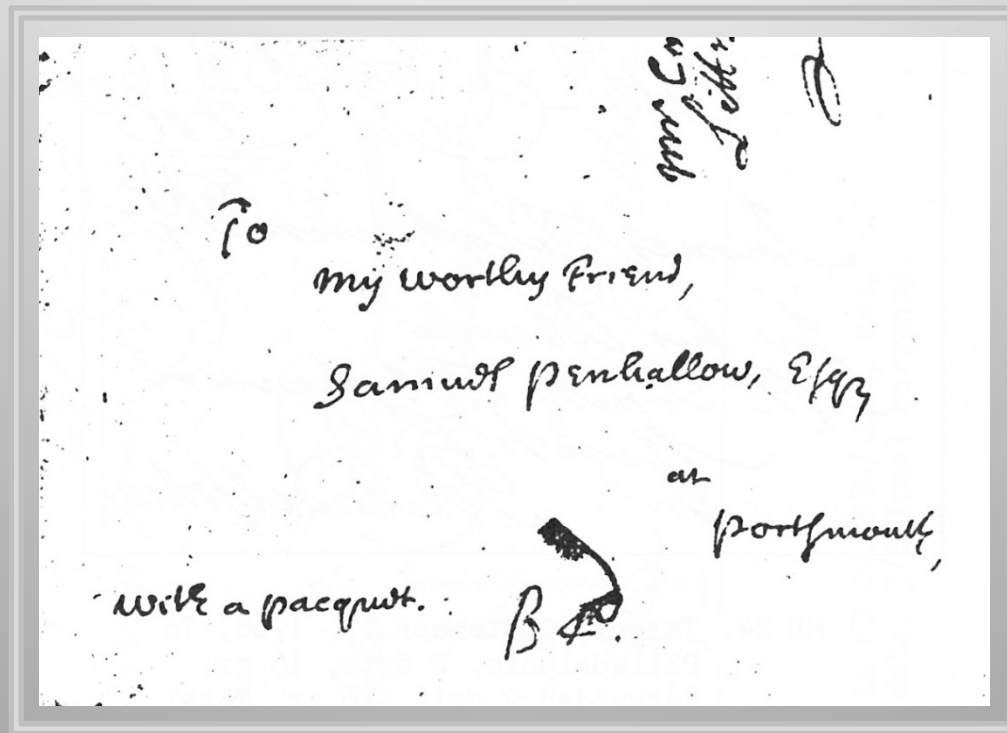 To
My worthy Friend,
Samuel Penhallow, Esqr
at
Portsmouth,
with a pacquet.
Mr